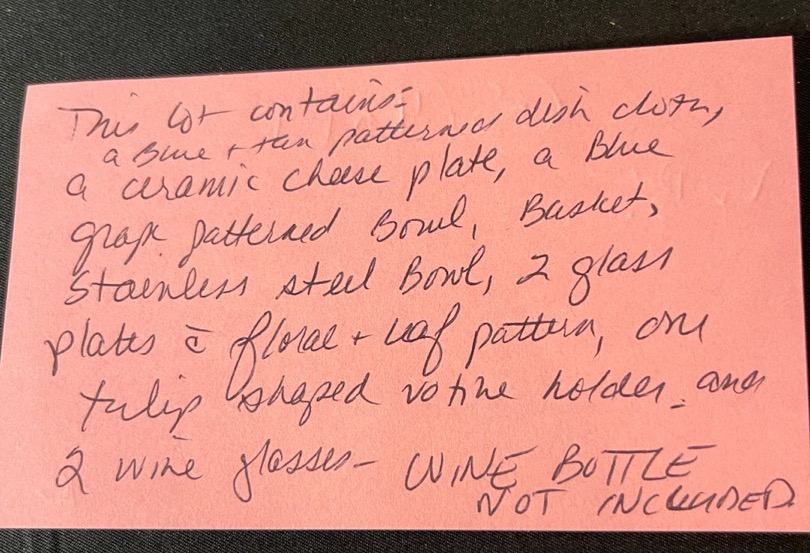 This lot contains-
a Blue + tan patterned dish cloth,
a ceramic cheese plate, a Blue
grape patterned Bowl, Basket,
Stainless steel Bowl, 2 glass
plates c̄ floral + leaf pattern, one
tulip shaped votive holder - and
2 wine glasses - WINE BOTTLE
NOT INCLUDED.